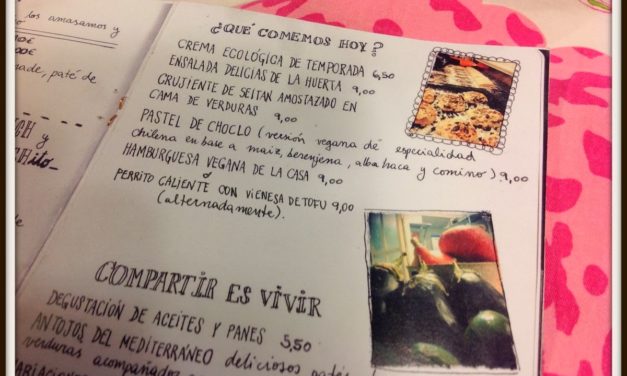 los amasamos y
00€
00€
ade, paté de
y
ito
¿QUÉ COMEMOS HOY?
CREMA ECOLÓGICA DE TEMPORADA 6,50
ENSALADA DELICIAS DE LA HUERTA 9,00
CRUJIENTE DE SEITAN AMOSTAZADO EN
CAMA DE VERDURAS 9,00
PASTEL DE CHOCLO (versión vegana de especialidad
chilena en base a maíz, berenjena, albahaca y comino) 9,00
HAMBURGUESA VEGANA DE LA CASA 9,00
ó
PERRITO CALIENTE CON VIENESA DE TOFU 9,00
(alternadamente).
COMPARTIR ES VIVIR
DEGUSTACIÓN DE ACEITES Y PANES 5,50
ANTOJOS DEL MEDITERRÁNEO deliciosos patés
verduras acompañados